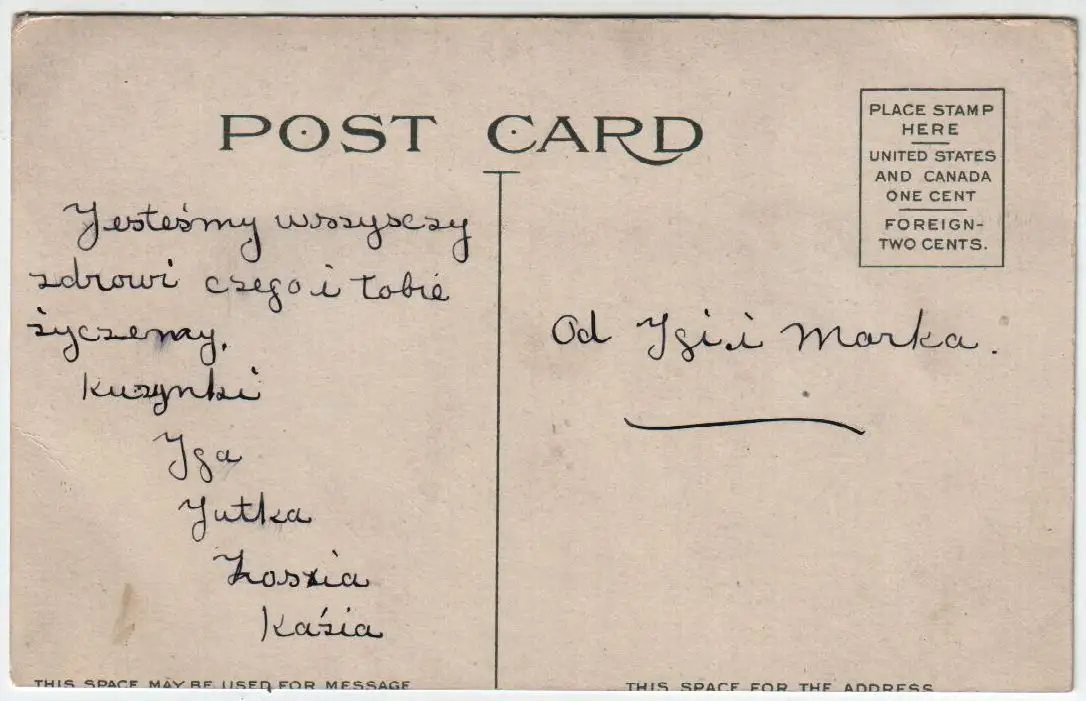 POST CARD
PLACE STAMP
HERE
UNITED STATES
AND CANADA
ONE CENT
FOREIGN-
TWO CENTS.
Jesteśmy wszysczy
zdrowi czego i tobie
życzemy.
Kuzynki
Iga
Jutka
Zosia
Kaśia
Od Igi.i Marka.
THIS SPACE MAY BE USED FOR MESSAGE
THIS SPACE FOR THE ADDRESS